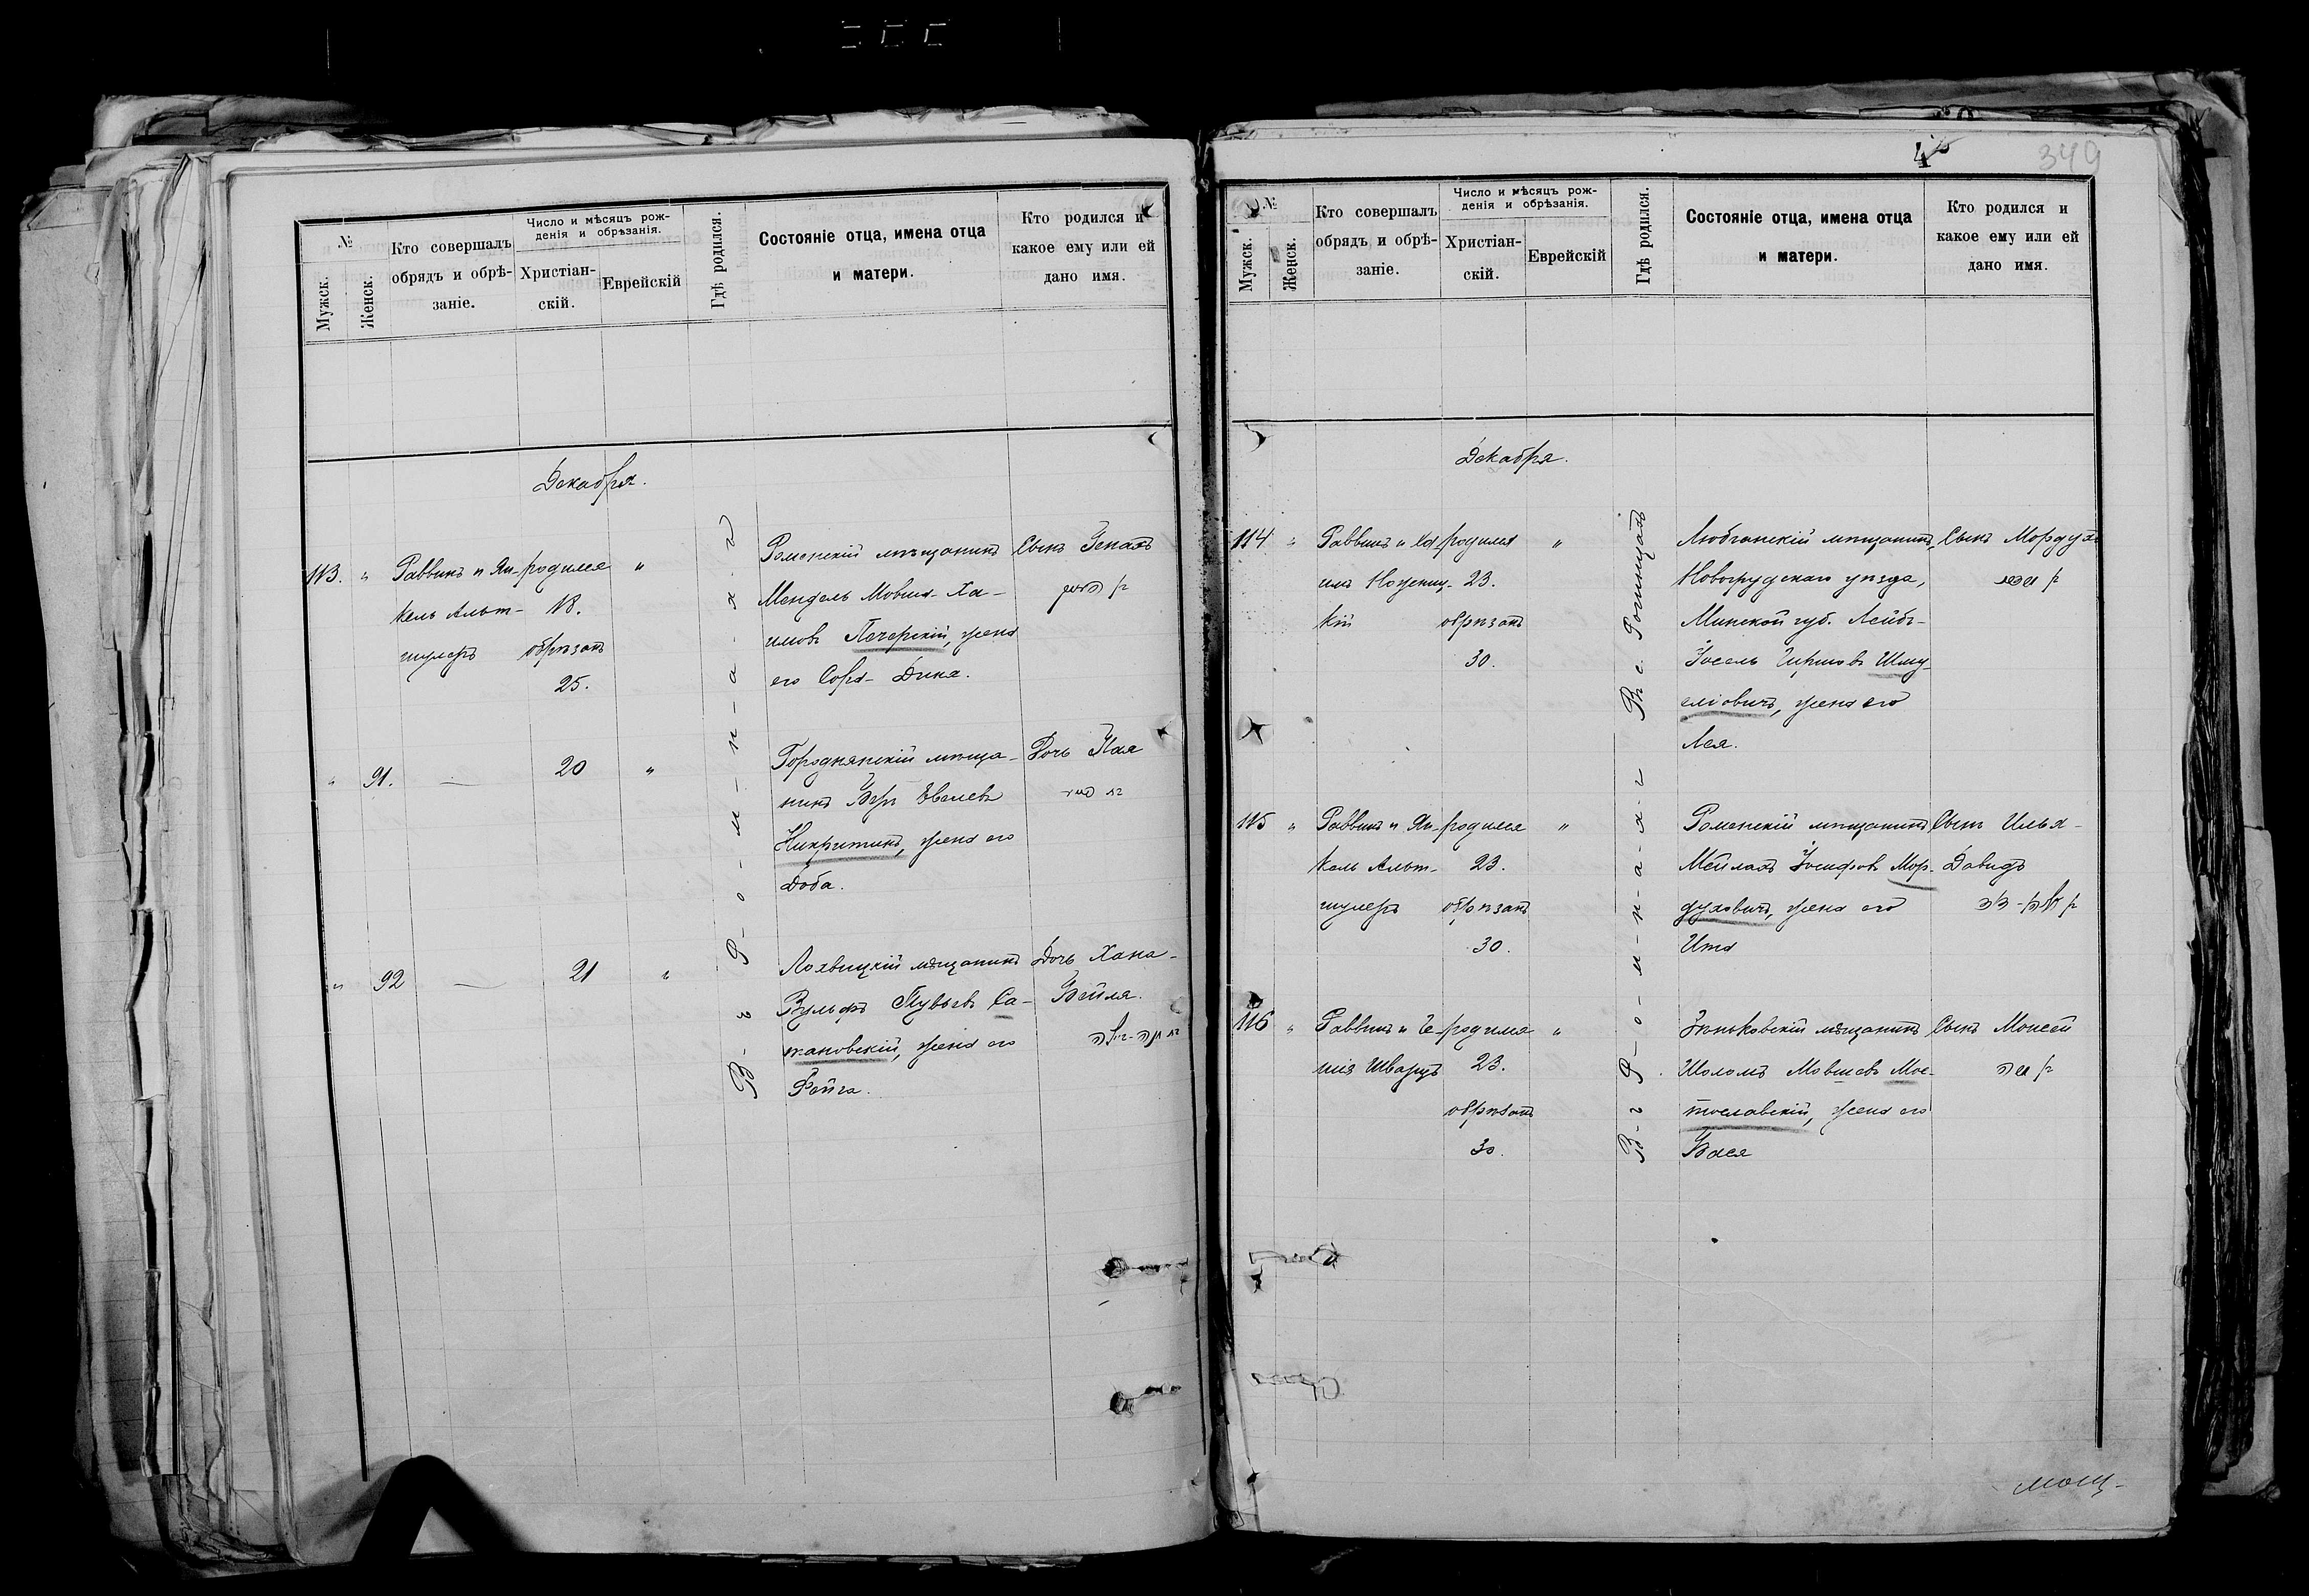 №
Мужск.
Женск.
Кто совершалъ
обрядъ и обрѣ-
заніе.
Число и мѣсяцъ рож-
денія и обрѣзанія.
Христіан-
скій.
Еврейскій
Гдѣ родился.
Состояніе отца, имена отца
и матери.
Кто родился и
какое ему или ей
дано имя.
Декабря.
113. " Раввинъ и Ян-
кель Альт-
шулеръ
родился
18.
обрѣзанъ
25.
"
В-ъ Р-о-м-н-а-х-ъ
Роменскій мѣщанинъ
Мендель Мовша-Ха-
имовъ Печерскій, жена
его Сора-Дина.
Сынъ
" 91. — 20 "
Городнянскій мѣща-
нинъ Беръ Евелевъ
Никритинъ, жена его
Доба.
Дочь Хая
" 92 — 21 "
Лохвицкій мѣщанинъ
Вульфъ Тувьевъ Са-
жановскій, жена его
Фейга.
Дочь Хана-
Бейля.
349
№
Мужск.
Женск.
Кто совершалъ
обрядъ и обрѣ-
заніе.
Число и мѣсяцъ рож-
денія и обрѣзанія.
Христіан-
скій.
Еврейскій
Гдѣ родился.
Состояніе отца, имена отца
и матери.
Кто родился и
какое ему или ей
дано имя.
Декабря.
114 " Раввинъ и Ха-
имъ
кій
родился
23.
обрѣзанъ
30.
"
Въ с.
Любчанскій мѣщанинъ,
Новогрудскаго уѣзда,
Минской губ. Лейбъ-
Іосель Гиршовъ Шму-
еліовичъ, жена его
Лея.
Сынъ Мордухъ
115 " Раввинъ и Ян-
кель Альт-
шулеръ
родился
23.
обрѣзанъ
30.
"
В-ъ Р-о-м-н-а-х-ъ
Роменскій мѣщанинъ
Мейлахъ Іосифовъ Мор-
духовичъ, жена его
Ита
Сынъ Илья-
Давидъ
116 " Раввинъ и Ге-
шія Шварцъ
родился
23.
обрѣзанъ
30.
"
Зѣньковскій мѣщанинъ
Шоломъ Мовшевъ Мос-
тославскій, жена его
Бася
Сынъ Моисей
משה